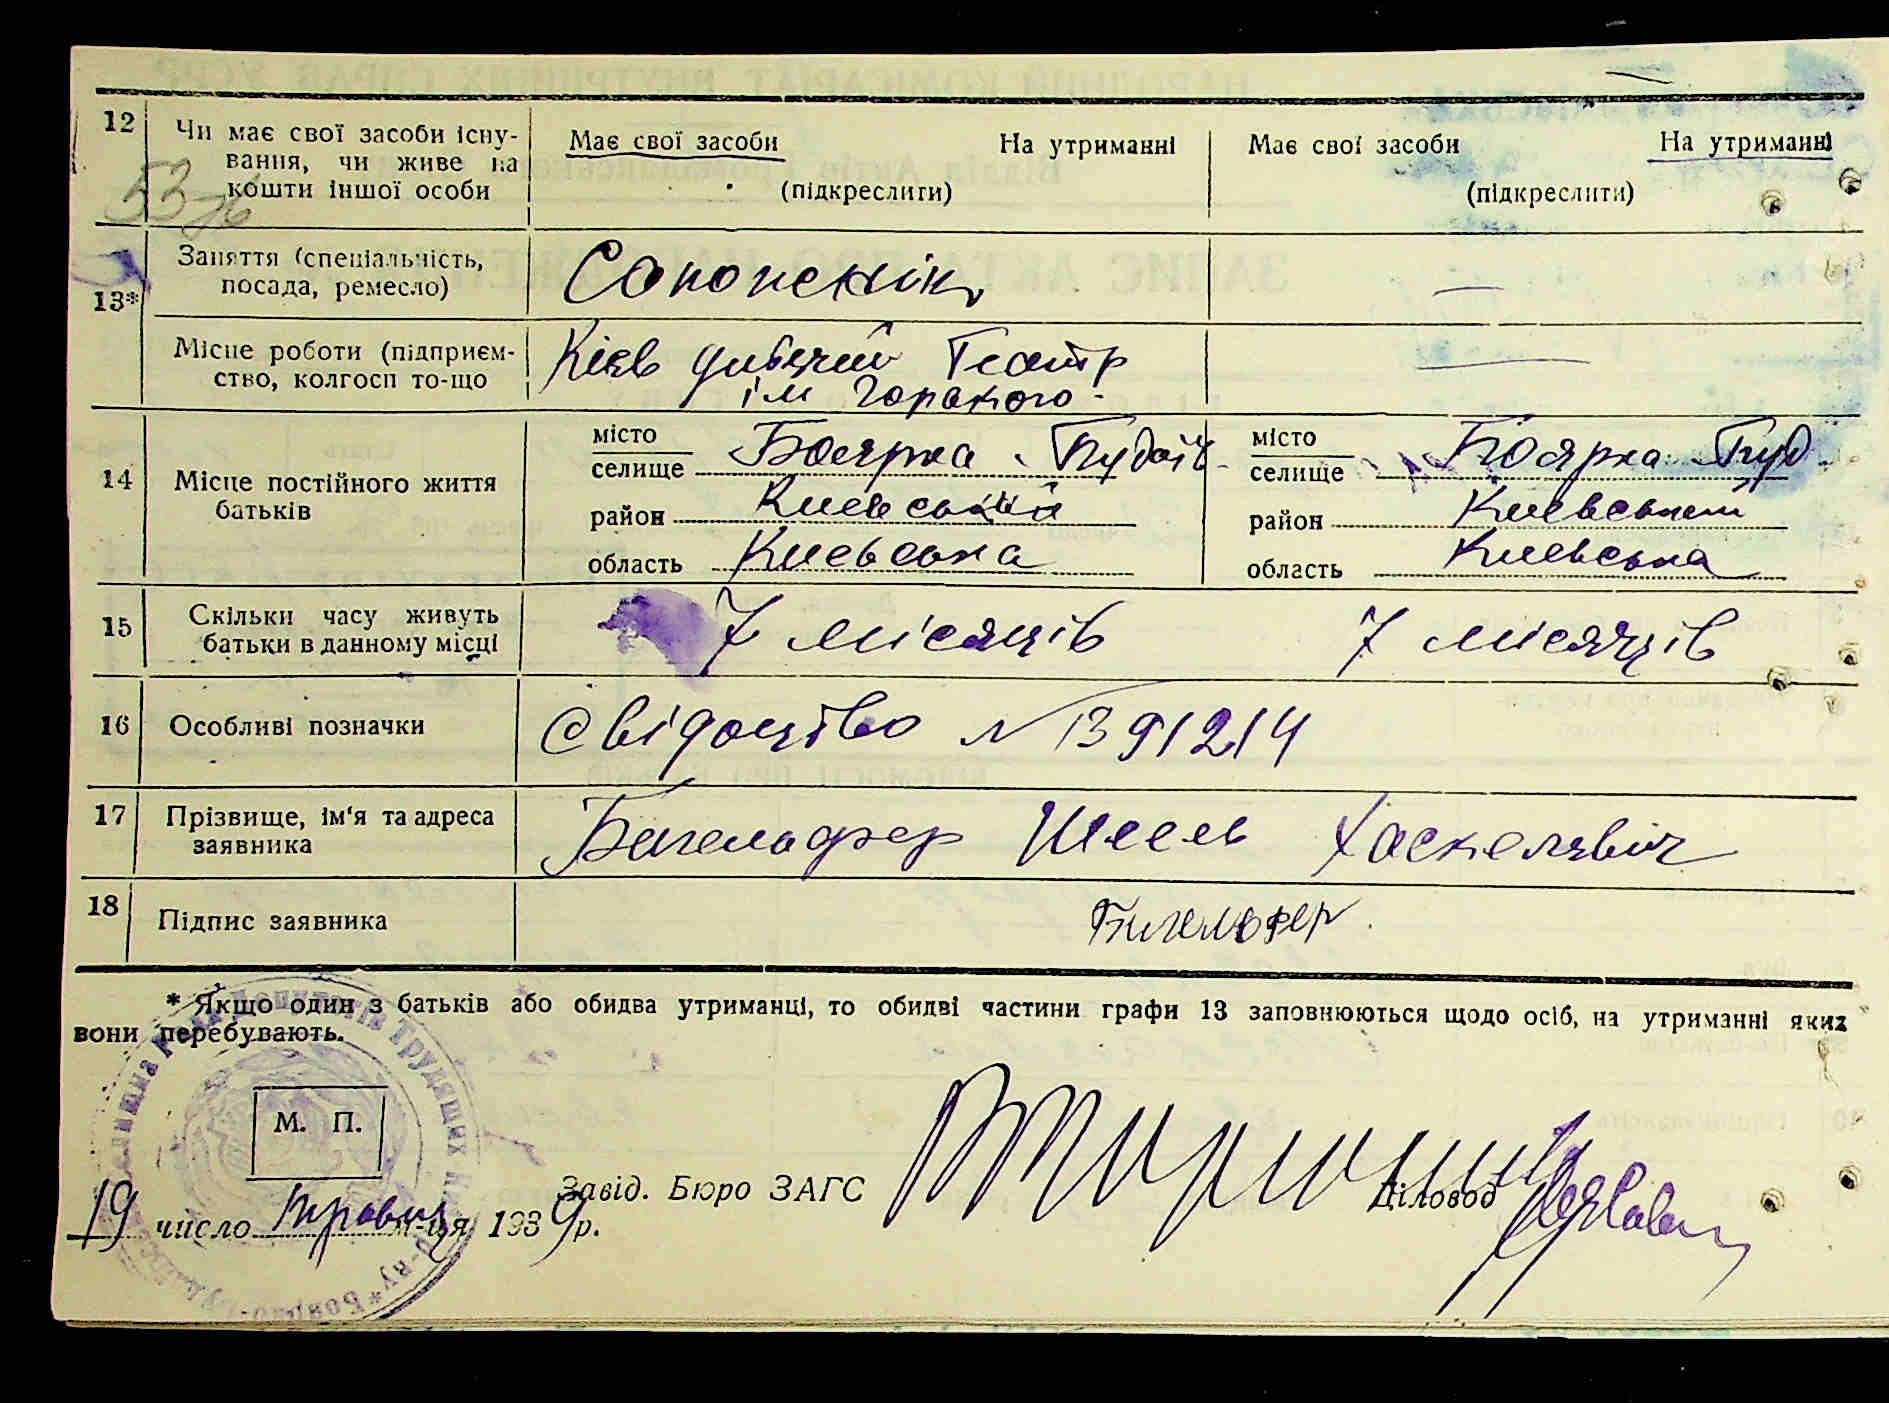 12
Чи має свої засоби існу-
вання, чи живе на
кошти іншої особи
53
Має свої засоби На утриманні
(підкреслити)
Має свої засоби На утриманні
(підкреслити)
13*
Заняття (спеціальність,
посада, ремесло)
—
Місце роботи (підприєм-
ство, колгосп то-що
Київ дитячий Театр
ім Горького
—
14
Місце постійного життя
батьків
місто
селище Боярка - Будаїв
район Киевський
область Киевська
місто
селище Боярка Буд
район Киевський
область Киевська
15
Скільки часу живуть
батьки в данному місці
7 місяців 7 місяців
16
Особливі позначки
Свідоцтво № 1391214
17
Прізвище, ім'я та адреса
заявника
Бигельфер Шеель Хаскелевіч
18
Підпис заявника
Бигельфер
* Якщо один з батьків або обидва утриманці, то обидві частини графи 13 заповнюються щодо осіб, на утриманні яких
вони перебувають.
М. П.
Завід. Бюро ЗАГС
Діловод
19 число м-ця 1939 р.